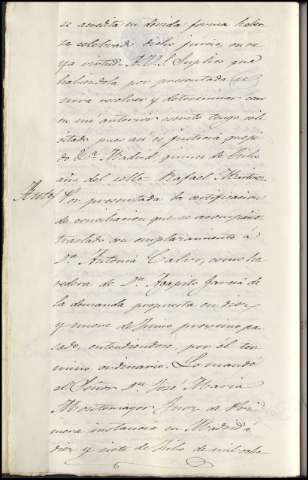 se acredita en devida forma haber
se celebrado dicho juicio, en cu
ya virtud. A. V. S. Suplico que
habiéndola por presentada se
sirva resolver y determinar con
en mi anterior escrito tengo soli
citado pues así es justicia que pi
do V.ª Madrid quince de Julio
año del sello Rafael Martinez
Auto/ Por presentada la certificación
de conciliacion que se acompaña:
traslado con emplazamiento á
D.ª Antonia Calvo, como he
redera de D.n Agapito Garcia de
la demanda propuesta en diez
y nueve de Junio proximo pa
sado, entendiendose, por el ter
mino ordinario. Lo mandó
el Señor D.n José Maria
Montemayor Juez de Pri
mera instancia en Madrid á
diez y siete de Julio de mil ocho